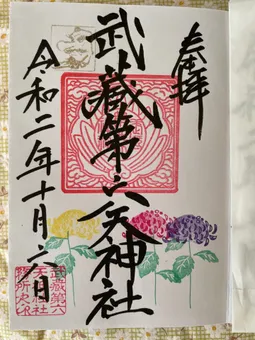 奉拝
武蔵第六天神社
令和二年十月六日
武蔵第六
天神社社
務所之印